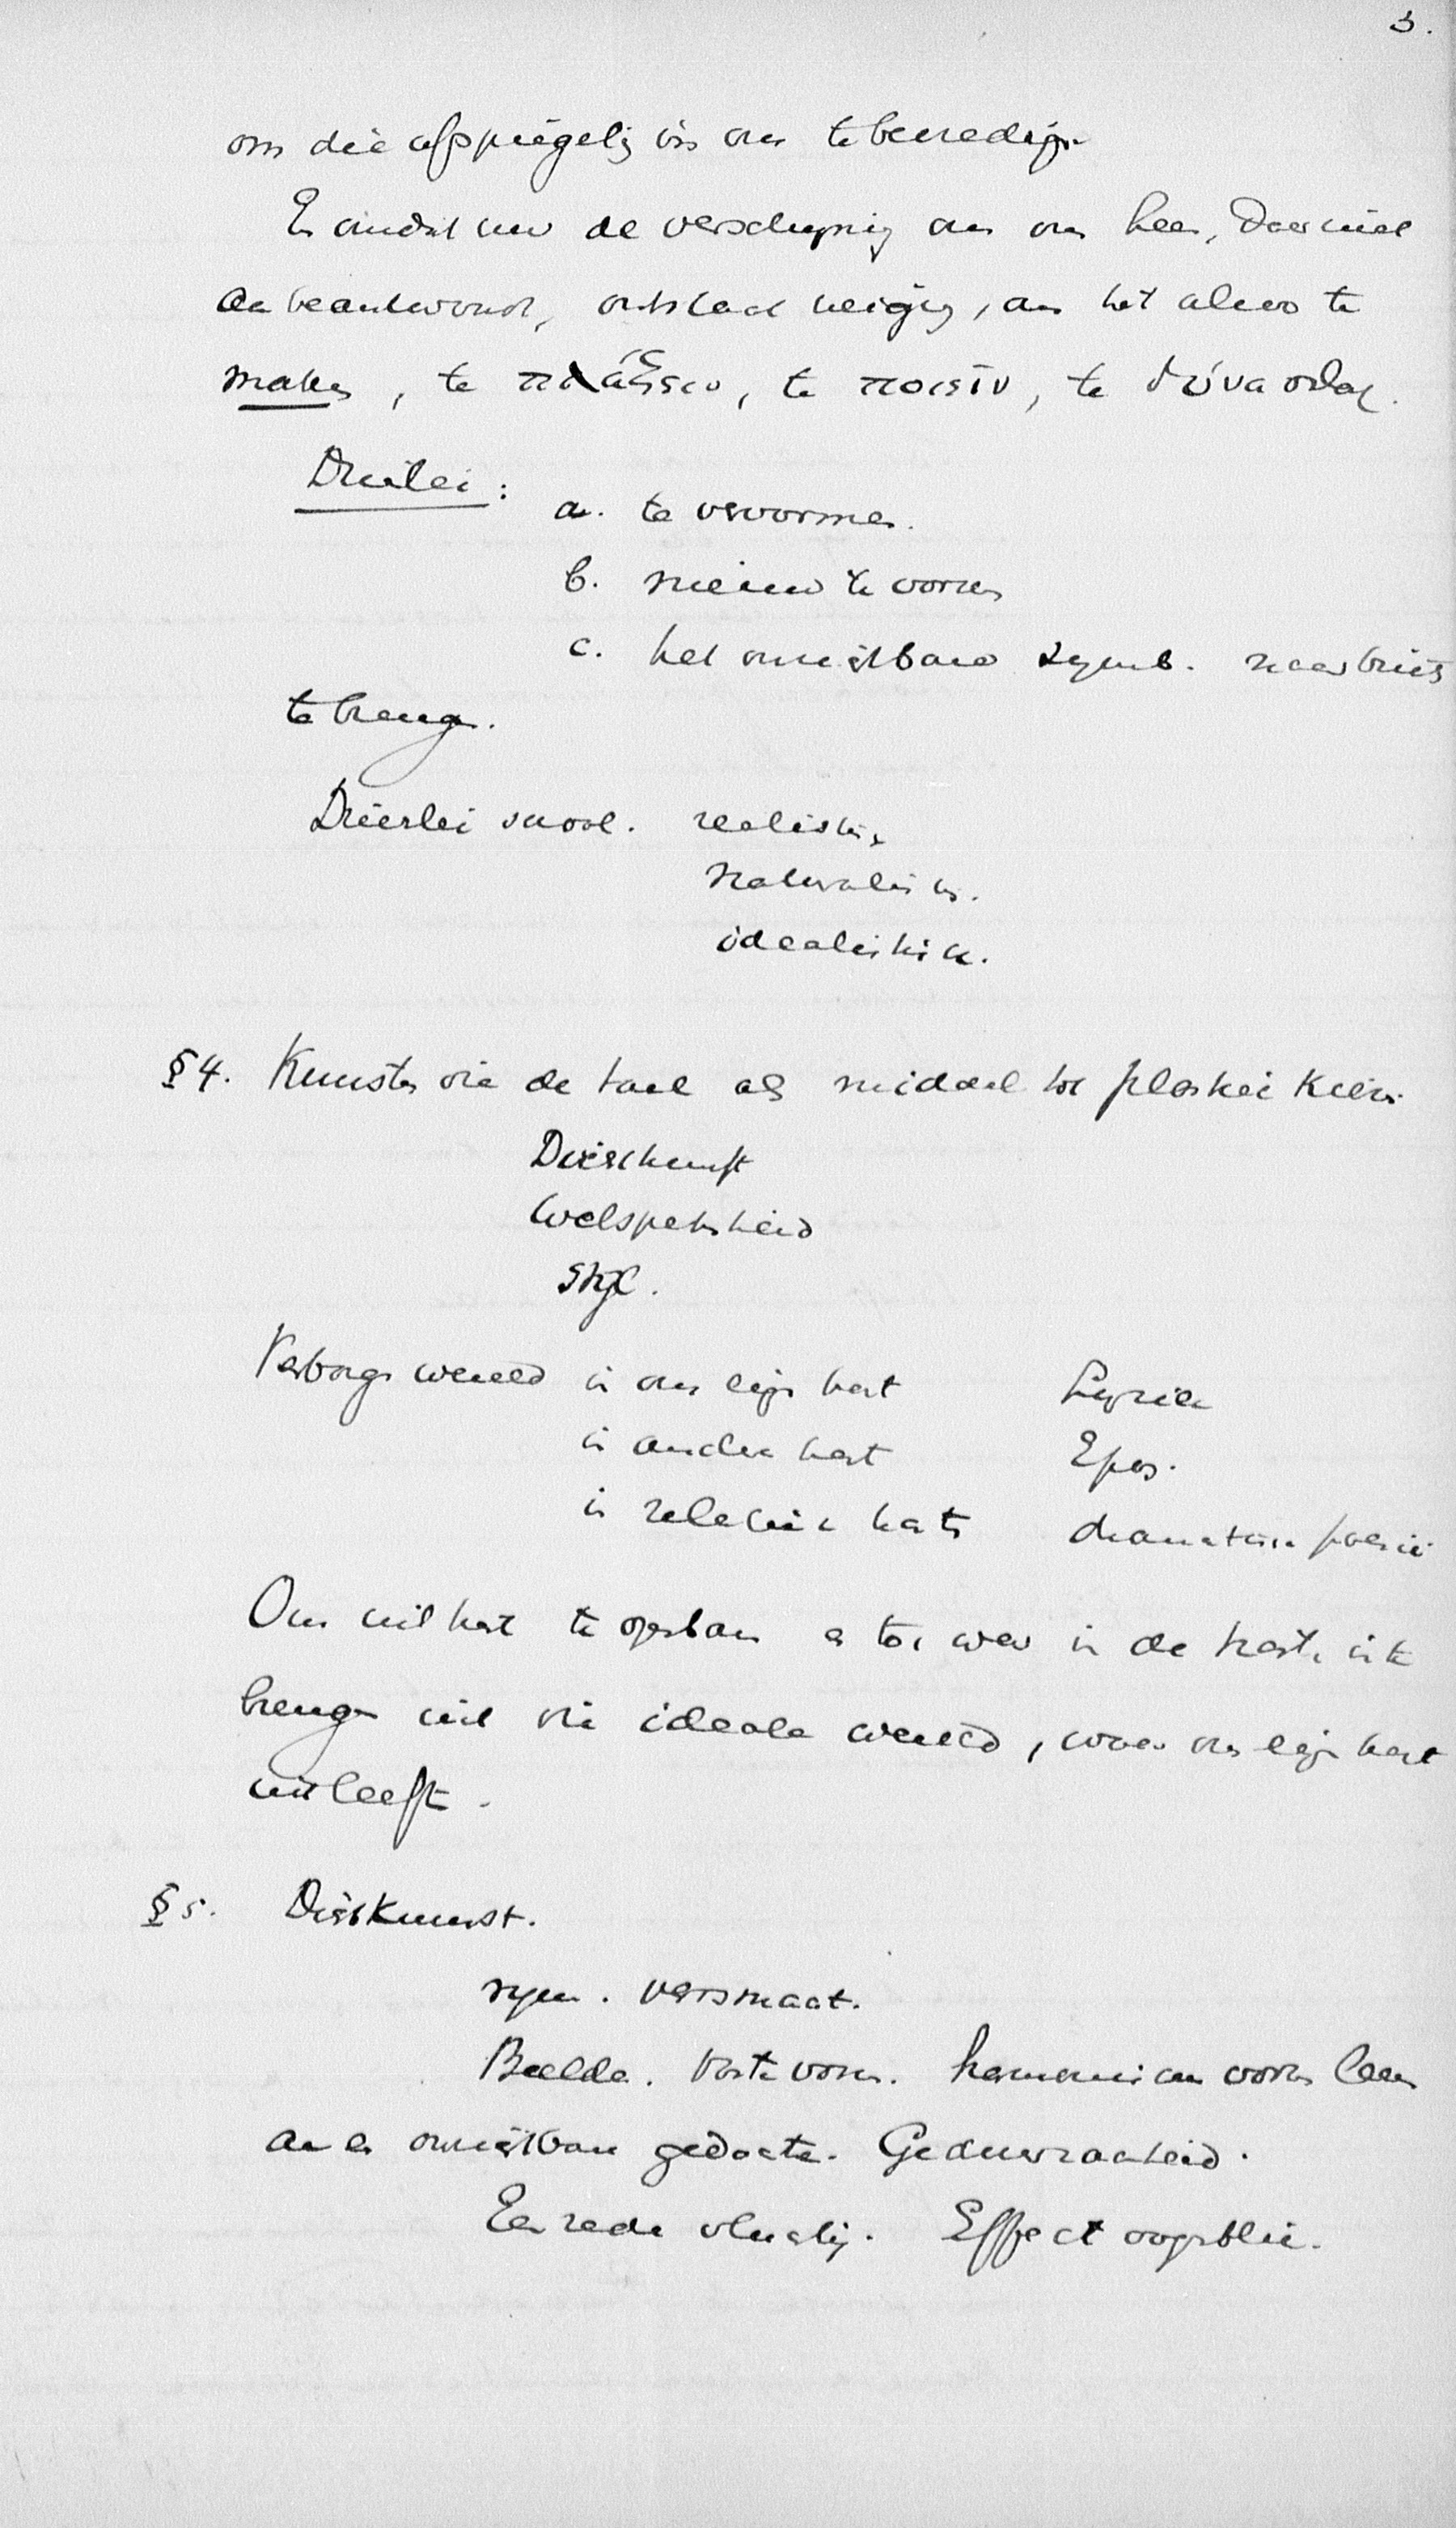 3.
om die afspiegelg in ons te bevredigen
En omdat nu de verschyning om ons heen, daar niet
aan beantwoordt, ontstaat neiging, om het alzoo te
maken, te πλάσσειν, te ποιεῖν, te δύνασθαι.
Drieërlei :
a. te vervormen.
b. nieuw te vormen
c. het onzichtbare symb. naar buiten
te brengen.
Drieërlei school. realistische
naturalistische.
idealistische.
§ 4. Kunsten die de taal als middel tot plastiek kiezen.
Dichtkunst
Welsprekendheid
Stijl.
Verborgen wereld in ons eigen hart Lyriek
in ander hart Epos.
in relatie harten dramatische poezie
Ons uit het te openbaren en toe in de harten in te
brengen uit die ideale wereld, waar ons eigen hart
uit leeft.
§ 5. Dichtkunst.
rym. versmaat.
Beelden. Vaste vorm. harmonie van vorm leen
aan en onzichtbare gedachte. Gedurzaamheid.
Een rede vluchtig. Effect oogenblik.